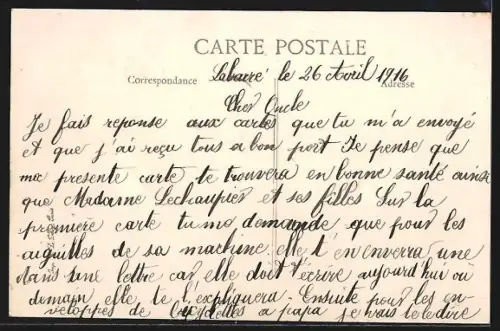 CARTE POSTALE
Correspondance
Adresse
Labarre le 26 Avril 1916
Cher Oncle
Je fais reponse aux cartes que tu m'a envoyé
et que j'ai reçu tous a bon port Je pense que
ma presente carte te trouvera en bonne santé ainsi
que Madame Lechaupier et ses filles Sur la
première carte tu me demande que pour les
aiguilles de sa machine elle t'en enverra une
dans une lettre car elle doit t'ecrire aujourd'hui ou
demain elle te l'expliquera - Ensuite pour les en-
veloppes de a papa je vais le le dire